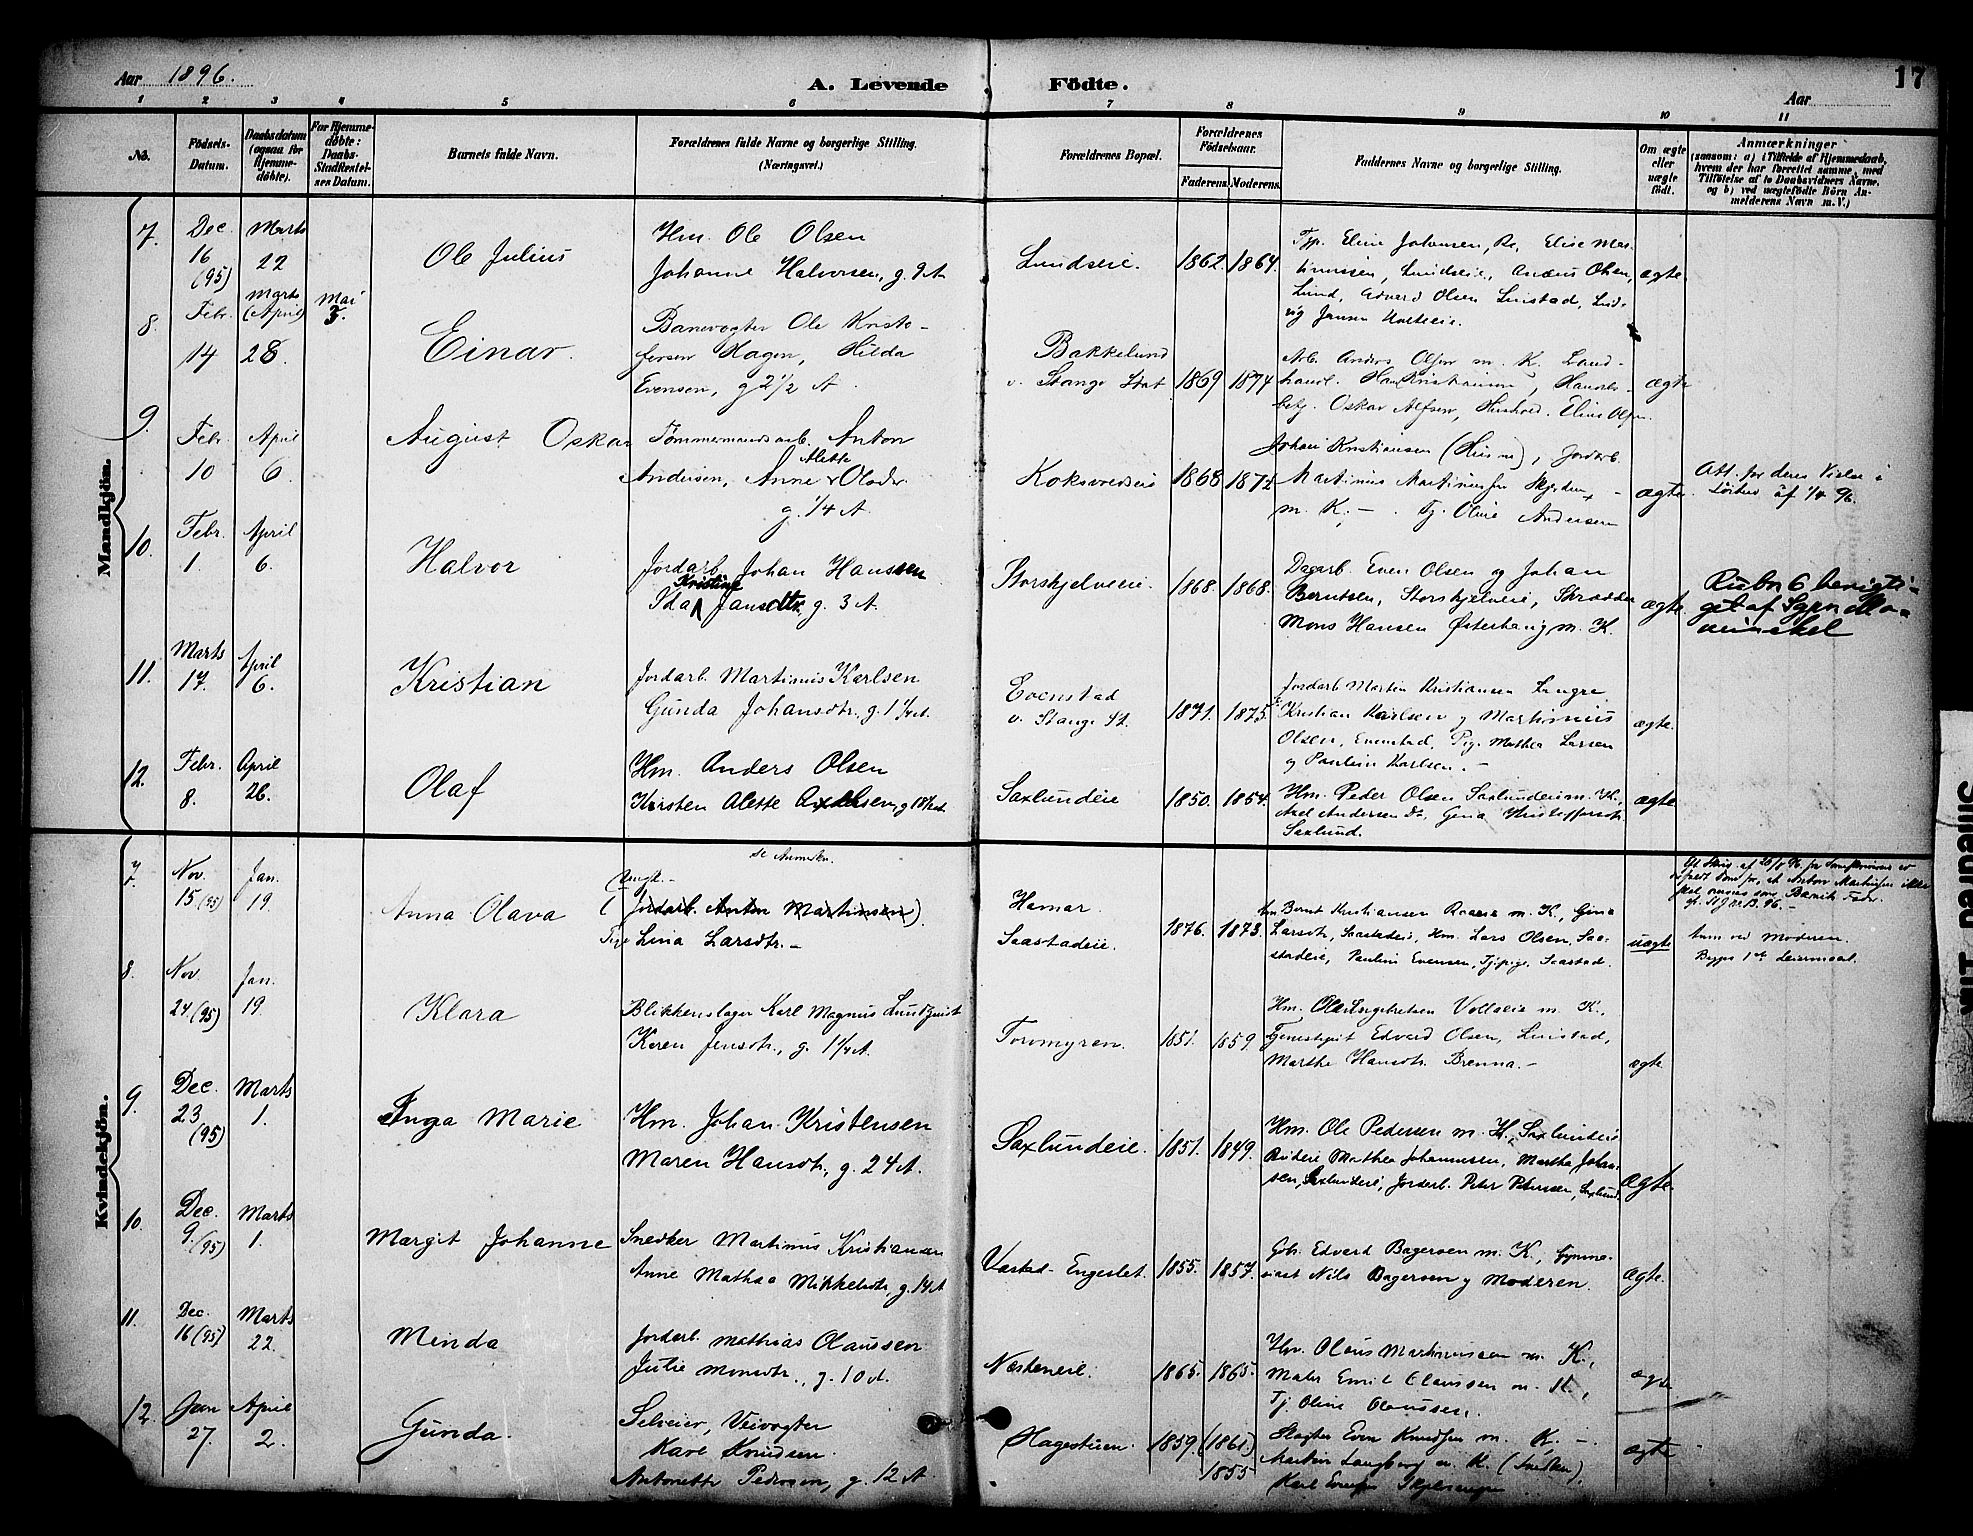 Aar 1896.
A. Levende Födte.
17
Aar
1 2 3 4 5 6 7 8 9 10 11
No.
Födsels-
Datum.
Daabsdatum
(ogsaa for
Hjemme-
döbte).
For Hjemme-
döbte:
Daabs-
Stadfæstel-
ses Datum.
Barnets fulde Navn.
Forældrenes fulde Navne og borgerlige Stilling.
(Næringsvei.)
Forældrenes Bopæl.
Forældrenes
Födselsaar.
Faderens. Moderens.
Faddernes Navne og borgerlige Stilling.
Om ægte
eller
uægte
födt.
Anmærkninger
(saasom: a) i Tilfælde af Hjemmedaab,
hvem der har forrettet samme, med
Tilföielse af to Daabsvidners Navne,
og b) ved uægtefödte Börn An-
melderens Navn m. V.)
Mandkjön.
7. Dec. 16 (95) Marts 22
Ole Julius
Hm. Ole Olsen
Johanne Halvorsen, g. 9 A
Lundseie. 1862. 1864.
Tjp. Eline Johansen, Elise Mar-
tinussen, Lundseie, Anders Olsen,
Lund, Edvard Olsen Linstad, Lud-
vig Jansen
ægte
8. Febr. 14 Marts (April) 28 Mai 3.
Einar.
Banevogter Ole Kristo-
fersen Hagen, Hilda
Evensen, g 2 1/2 A.
Bakkelund
v. Stange Stat 1869 1874
Arb. Anders Olsen m. K. Land-
handl. Kristiansen, Handels-
betj. Oskar Alfsen, Hushold. Eline Olsen.
ægte
9. Febr. 10 April 6
August Oskar
Tømmermandsarb. Anton
Andersen, Anne Alette Olsdtr
g. 1/4 A.
Koksvedseie 1868 1872
Johan Kristiansen (Husm), Jordarb.
Martinius Martinusen
m. K. -. Tj. Oline Andersen
ægte
Att. for deres Vielse i
Löiten af 1/4 96.
10. Febr. 1. April 6.
Halvor
Jordarb. Johan Hanssen
Ida Kristine Jansdtr. g. 3 A.
Storskjelveeie. 1868. 1868.
Dagarb. Even Olsen og Johan
Berntsen, Storskjelveeie, Skrædder
Mons Hansen Østerhaug m. K.
ægte
Rubr. 6 berigti-
get af Sgpr.
11. Marts 17. April 6.
Kristian
Jordarb. Martinius Karlsen
Gunda Johansdtr. g. 1 1/4 A.
Evenstad
v. Stange St. 1871. 1875.
Jordarb. Martin Kristiansen
Kristian Karlsen og Martinius
Olsen, Evenstad, Pige Mathea Larsen
og Pauline Karlsen. -
ægte.
12. Febr. 8. April 26.
Olaf
Hm. Anders Olsen
Kirsten Alette Axelsen, g
Saxlundeie 1850. 1854.
Hm. Peder Olsen Saxlundeie m. K.,
Axel Andersen Do, Gina Kristoffersdtr.
Saxlund.
ægte
Kvindekjön.
7. Nov. 15 (95) Jan. 19.
Anna Olava
se Anmerkn.
Ungk. -
(Jordarb. Anton Martinsen).
Pige Lina Larsdtr. -
Hamar.
Saastadeie. 1876. 1873.
Hm Bernt Kristiansen m. K., Gina
Larsdtr, Saastadeie, Hm. Lars Olsen, Saa-
stadeie, Pauline Evensen, Tjpige. Saastad.
uægte
at Anton Martinsen ikke
skal ansees som Barnets Fader.
Anm. ved Moderen.
Begges 1ste Leiermaal.
8. Nov. 24. (95) Jan. 19.
Klara
Blikkenslager Karl Magnus Lundqvist
Karen Jensdtr., g. 1 1/4 A.
Torvmyren. 1851. 1859.
Hm. Ole Engebretsen m. K.,
Edvard Olsen, Linstad,
Marthe Hansdtr. Brenna. -
ægte
9. Dec. 23 (95) Marts 1.
Inga Marie
Hm. Johan Kristensen
Maren Hansdtr., g. 24 A.
Saxlundeie. 1851. 1849.
Hm. Ole Pedersen m. K. Saxlundeie
Mathea Johannesen, Martha Johan-
sen, Saxlundeie, Jordarb. Peter Petersen, Saxlund.
ægte.
10. Dec. 9. (95) Marts 1.
Margit Johanne
Snedker Martinus Kristiansen
Anne Mathea Mikkelsdtr, g. 14 A
Vastad-Engeslet. 1855. 1857.
Edvard Bagersen m. K.,
Nils Bagersen og Moderen.
ægte.
11. Dec. 16 (95) Marts 22.
Minda
Jordarb. Mathias Olaussen
Julie Monsdtr., g. 10 A.
Næsteneie. 1865. 1865.
Hm. Olaus Martinussen m. K.,
Maler Emil Olaussen m. K.,
Tj. Oline Olaussen.
ægte
12. Jan 27. April 2.
Gunda.
Selveier, Veivogter
Karl Knudsen.
Antonette Pedersen, g. 12 A
Hagestuen. 1859. (1861.)
1855
Slagter Even Knudsen m. K. -.
Martin Langberg m. K. (Snedker),
Karl Evensen
ægte